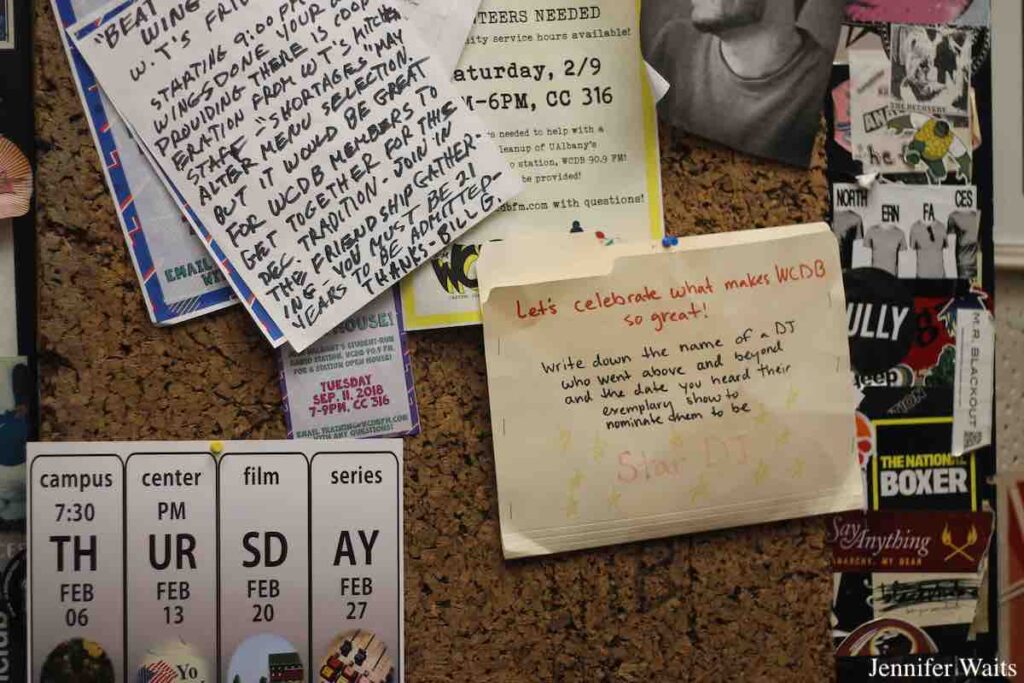 "BEAT
WING
W.T'S
STARTING 9:00 P
WINGS DONE YOUR
PROVIDING THERE IS COOP
ERATION FROM WT'S KITCH
STAFF - "SHORTAGES" MAY
ALTER MENU SELECTION.
BUT IT WOULD BE GREAT
FOR WCDB MEMBERS TO
GET TOGETHER FOR THIS
DEC. TRADITION - JOIN IN
THE FRIENDSHIP GATHER-
ING - YOU MUST BE 21
YEARS TO BE ADMITTED -
THANKS - BILL G.
EMAIL
TEERS NEEDED
ity service hours available!
aturday, 2/9
M-6PM, CC 316
s needed to help with a
leanup of UAlbany's
o station, WCDB 90.9 FM!
be provided!
dbfm.com with questions!
WC
HOUSE!
STUDENT-RUN
RADIO STATION, WCDB 90.9 FM,
FOR A STATION OPEN HOUSE!
TUESDAY
SEP. 11, 2018
7-9PM, CC 316
EMAIL TRAINING@WCDBFM.COM
WITH ANY QUESTIONS!
Let's celebrate what makes WCDB
so great!
Write down the name of a DJ
who went above and beyond
and the date you heard their
exemplary show to
nominate them to be
Star DJ
campus center film series
7:30 PM
TH UR SD AY
FEB FEB FEB FEB
06 13 20 27
Yo
THE RECOVERY
ANA
he
NORTH ERN FA CES
ULLY
eep
MR. BLACKOUT
THE NATIONAL
BOXER
Say Anything
ANARCHY, MY DEAR
Jennifer Waits